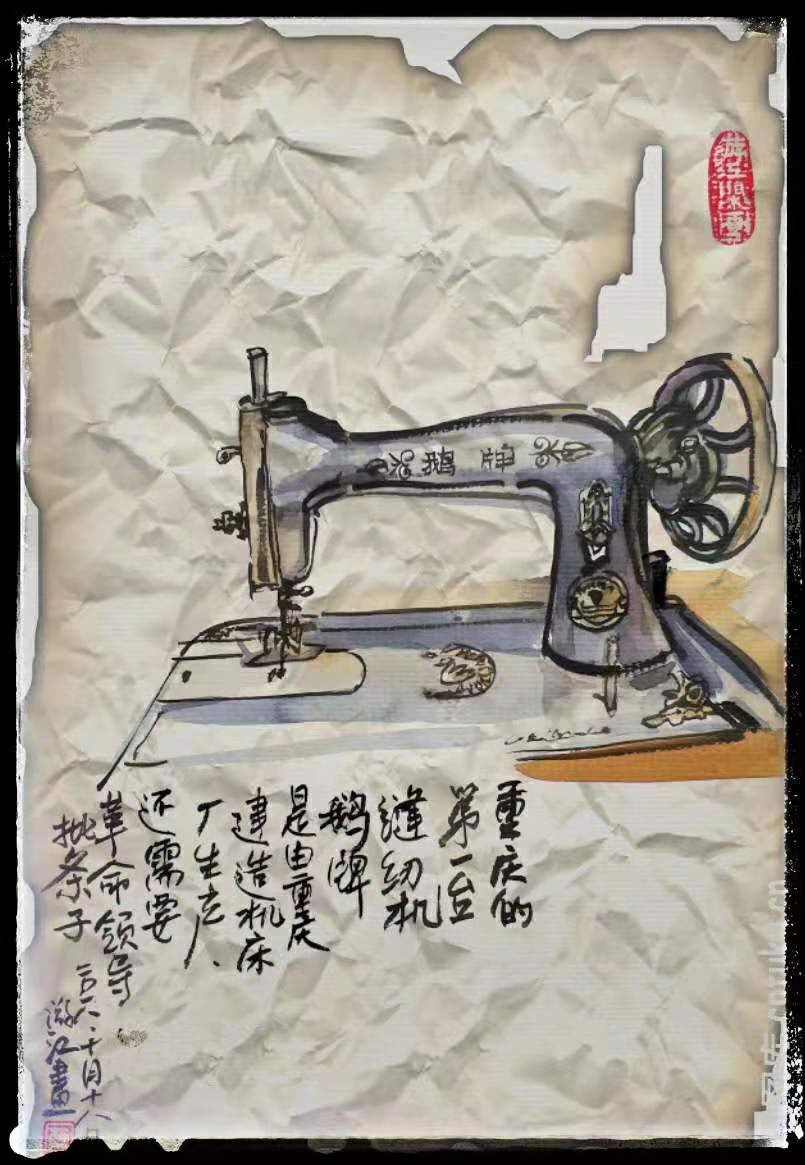 鹅牌
重庆的
第一台
缝纫机
鹅牌
是由重庆
建造机床
厂生产、
还需要
革命领导
批条子
二〇一八、十月十八日
游江畫